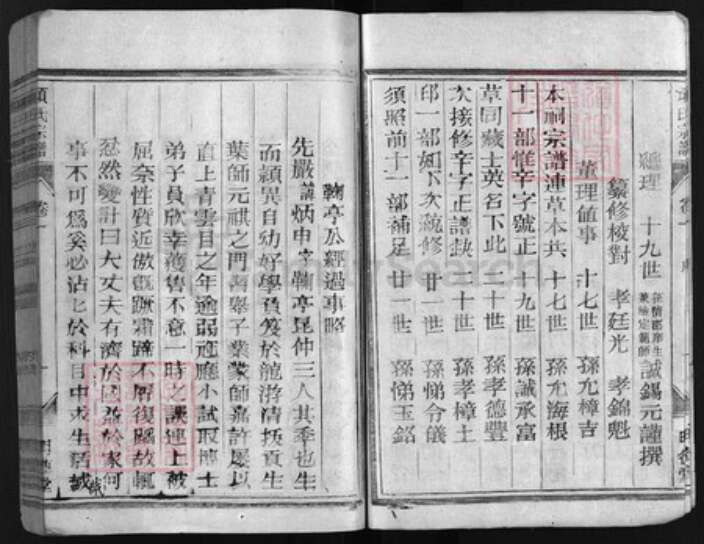 總理 十九世 誠錫元謹撰
纂修校對 孝廷光 孝錦魁
董理値事 十七世 孫尤樟吉
本祠宗譜連草本共 十七世 孫尤海根
十一部惟辛字號正 十九世 孫誠承富
草司藏士英名下此 二十世 孫孝德豐
次接修辛字正譜缺 二十世 孫孝樟土
印一部如下次統修 廿一世 孫悌令儀
須照前十一部補足 廿一世 孫悌玉銘
鞠亭公經過事略
先嚴諱炳申字鞠亭昆仲三人其季也生
而頴異自幼好學負笈於龍游清拔貢生
葉師元祺之門習舉子業業師嘉許屢以
直上青雲目之年逾弱冠應小試取博士
弟子員欣幸獲售不意一時之誤連上被
屈奈性質近傲
忿然變計曰大丈夫有濟於國益於家何
事不可爲奚必沾七於科目中求生活哉
項氏宗譜 卷一